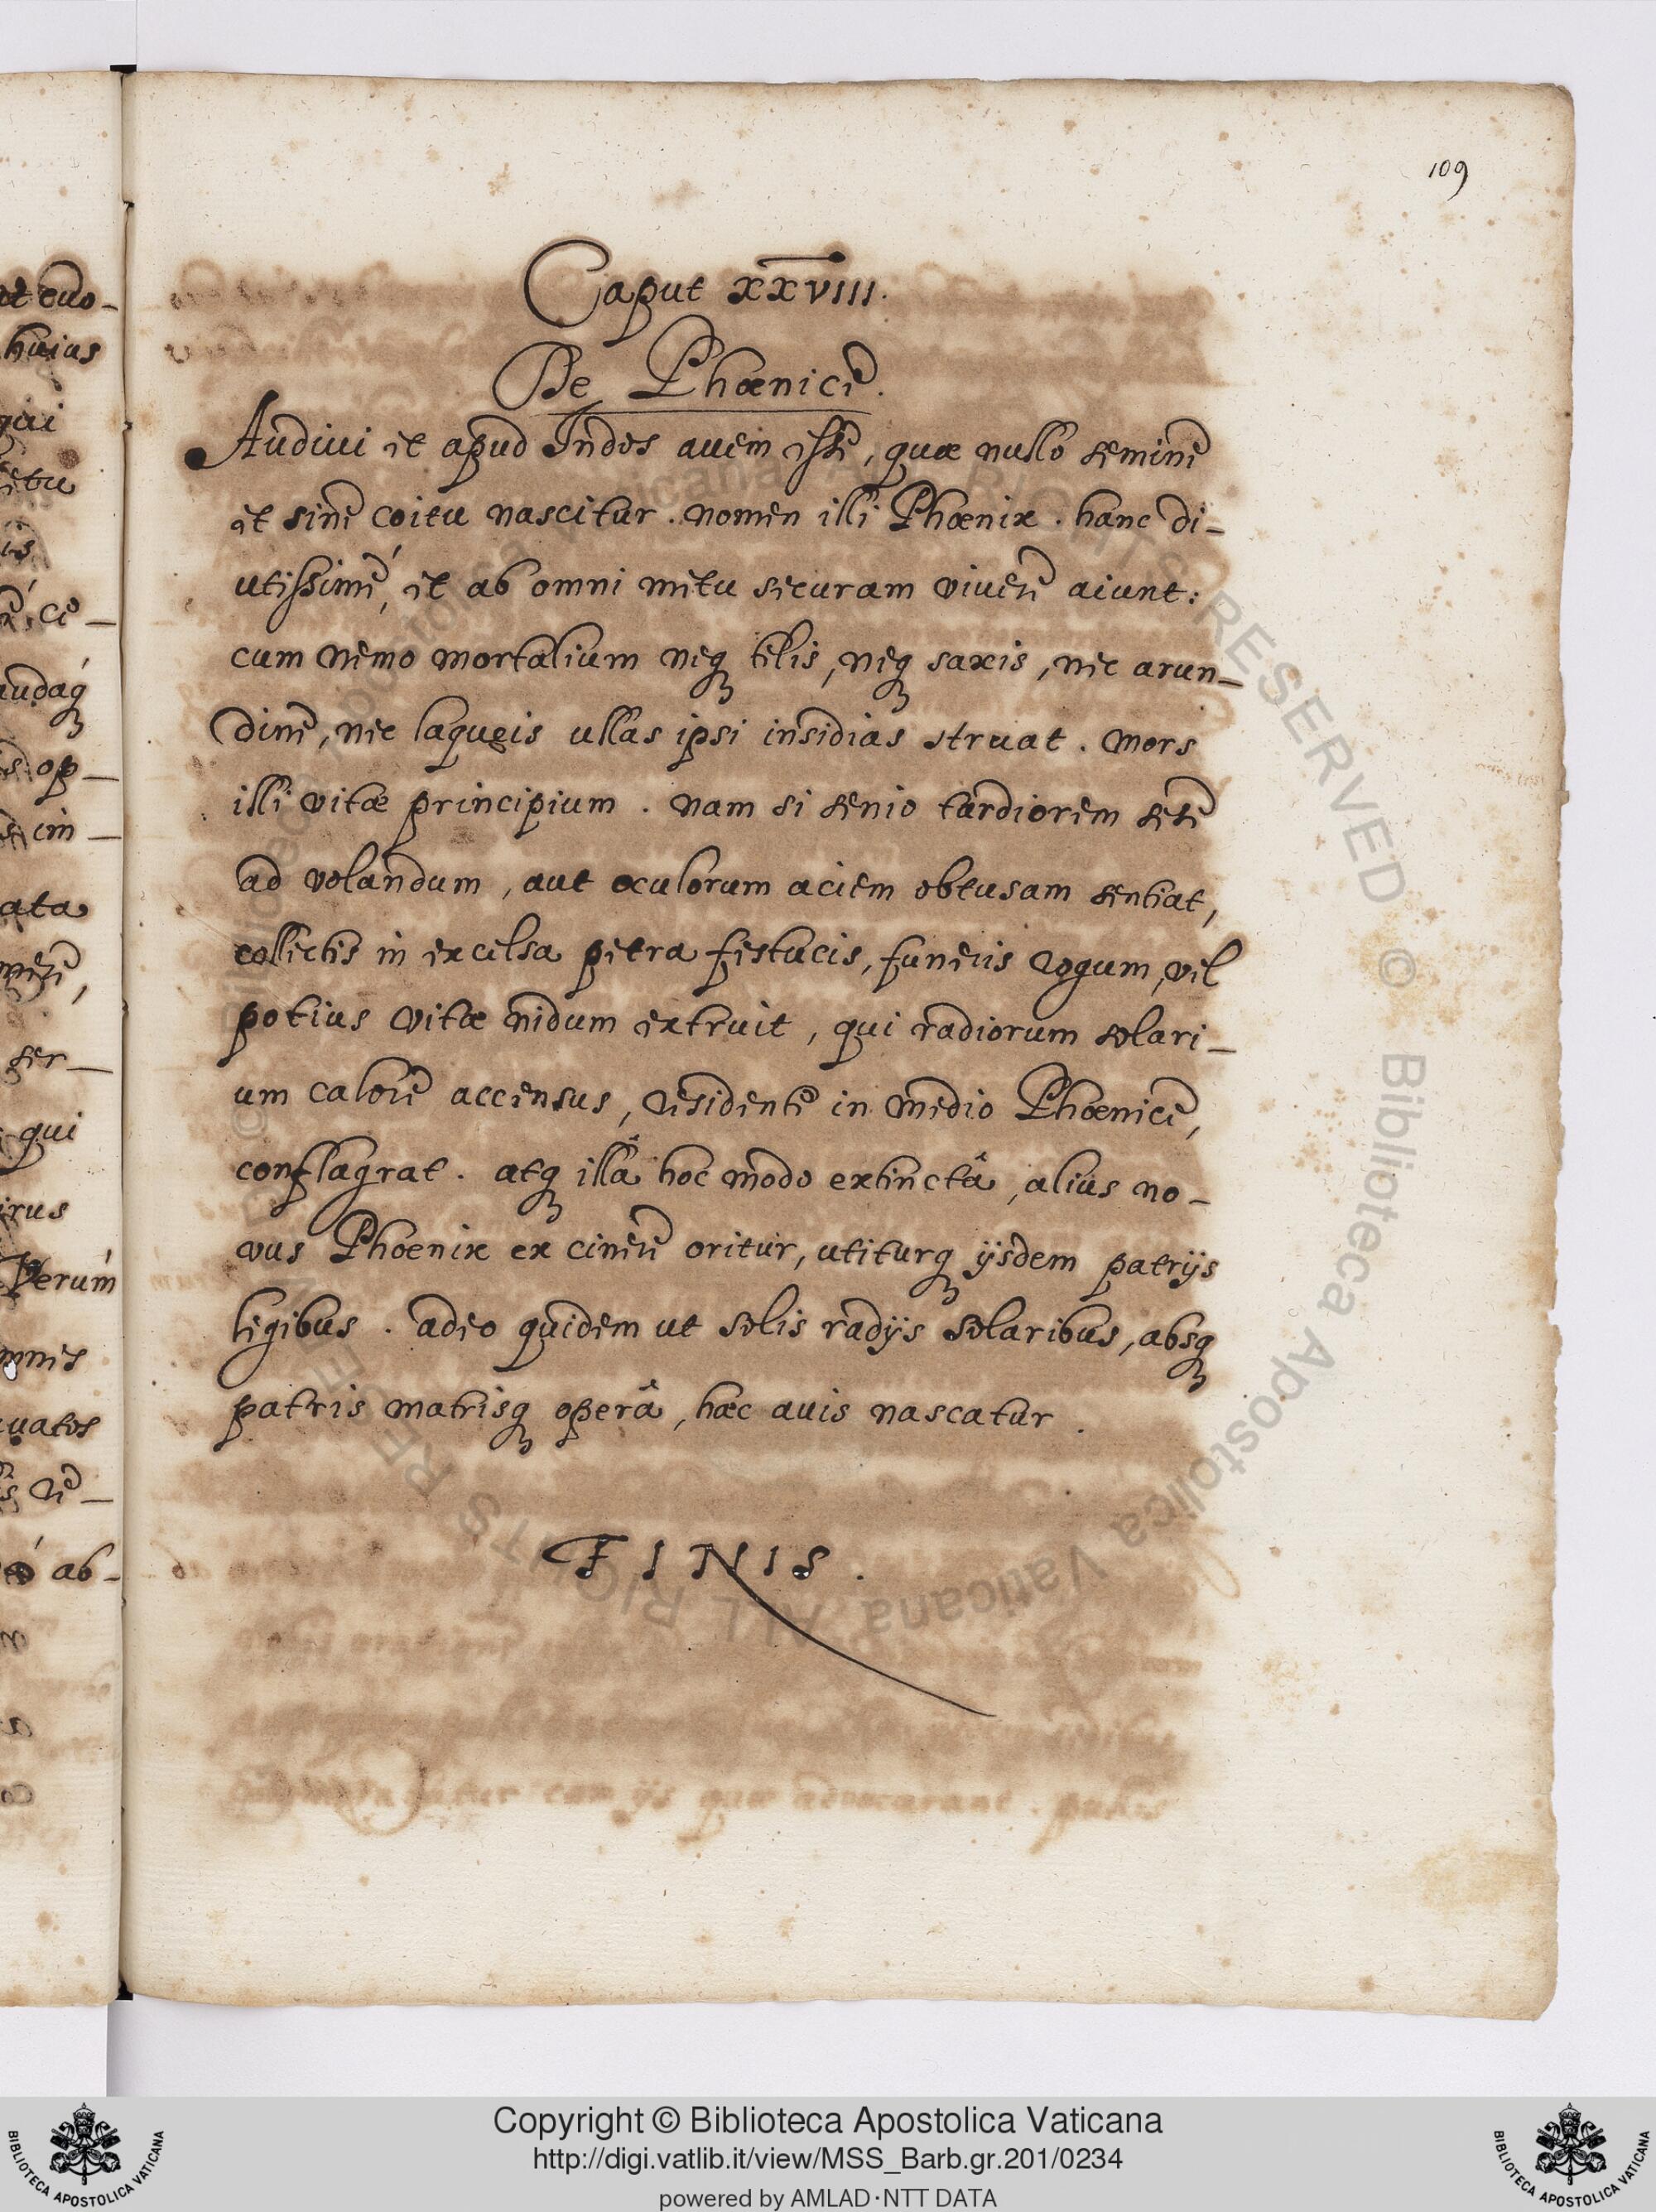 109
Caput XXVIII.
De Phœnice.
Audiui et apud Indos auem esse, quæ nullo semine
et sine coitu nascitur. nomen illi Phœnix. hanc di-
utissimé, et ab omni metu securam viuere aiunt:
cum nemo mortalium neq telis, neq saxis, nec arun-
dine, nec laqueis ullas ipsi insidias struat. Mors
illi vitæ principium. nam si senio tardiorem sese
ad volandum, aut oculorum aciem obtusam sentiat,
collectis in excelsa petra festucis, funeris rogum, vel
potius vitæ nidum extruit, qui radiorum solari-
um calore accensus, residente in medio Phœnice,
conflagrat. atq illâ hoc modo extinctâ, alius no-
vus Phoenix ex cinere oritur, utiturq ijsdem patrijs
legibus. adeo quidem ut solis radijs solaribus, absq
patris matrisq operâ, hæc auis nascatur.
FINIS.
Copyright © Biblioteca Apostolica Vaticana
http://digi.vatlib.it/view/MSS_Barb.gr.201/0234
powered by AMLAD·NTT DATA
BIBLIOTECA APOSTOLICA VATICANA
BIBLIOTECA APOSTOLICA VATICANA